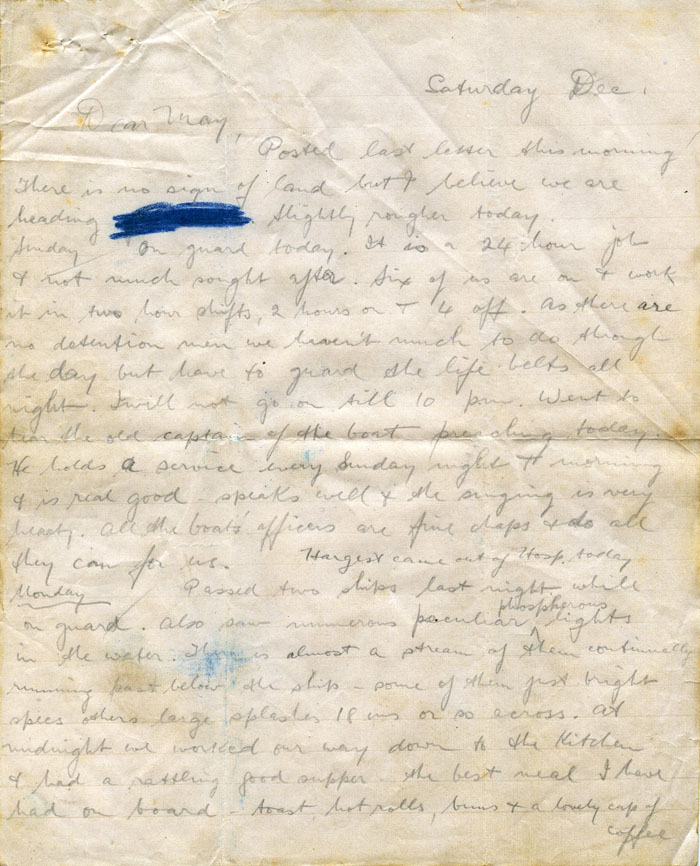 Saturday Dec.
Dear May,
Posted last letter this morning
There is no sign of land but I believe we are
heading slightly rougher today.
Sunday On guard today. It is a 24 hour job
& not much sought after. Six of us are on & work
it in two hour shifts, 2 hours on & 4 off. As there are
no detention men we haven't much to do though
the day but have to guard the life belts all
night. I will not go on till 10 pm. Went to
hear the old captain of the boat preaching today.
He holds a service every Sunday night & morning
& is real good - speaks well & the singing is very
hearty. All the boat's officers are fine chaps & do all
they can for us. Hargest came out of Hosp. today
Monday Passed two ships last night while
on guard. Also saw numerous peculiar phospherous lights
in the water. There is almost a stream of them continually
running past below the ship - some of them just bright
specs others large splashes 18 ins or so across. At
midnight we worked our way down to the Kitchen
& had a rattling good supper - the best meal I have
had on board - toast, hot rolls, buns & a lovely cup of
coffee